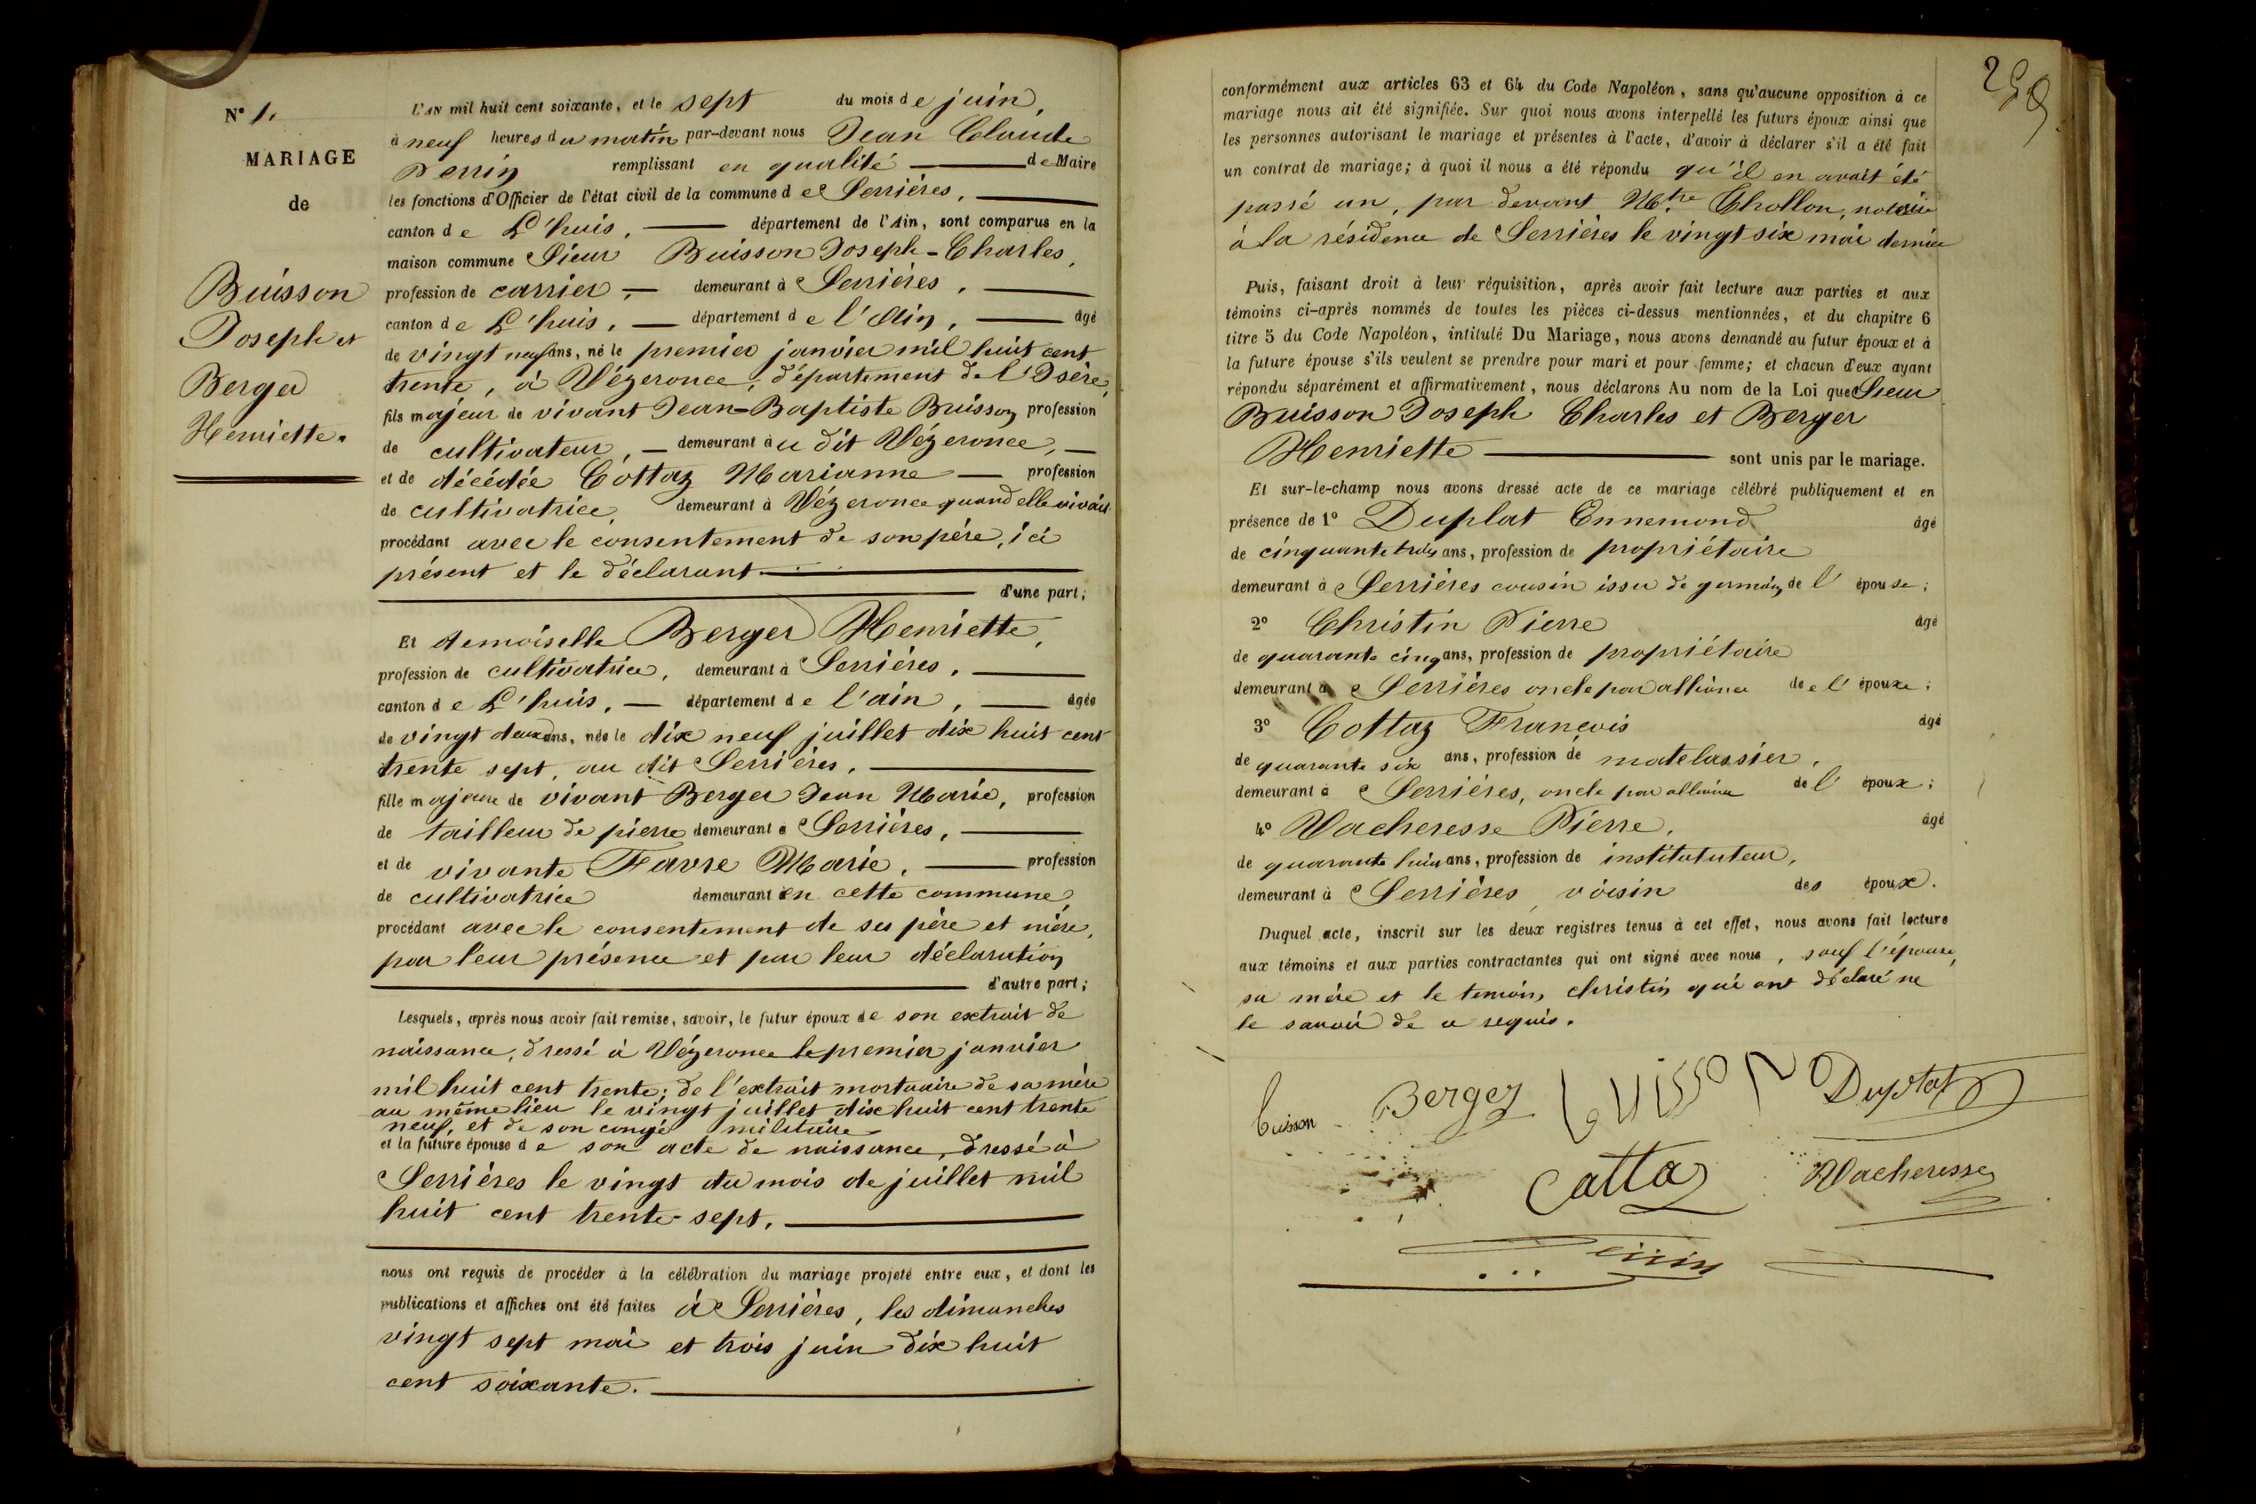 N° 1.
MARIAGE
de
Buisson
Joseph et
Berger
Henriette.
L'AN mil huit cent soixante, et le sept du mois de juin,
à neuf heures du matin par-devant nous Jean Claude
Perrin remplissant en qualité de Maire
les fonctions d'Officier de l'état civil de la commune de Serrières,
canton de L'huis, département de l'Ain, sont comparus en la
maison commune Sieur Buisson Joseph-Charles,
profession de carrier, demeurant à Serrières,
canton de L'huis, département de l'Ain, âgé
de vingt neuf ans, né le premier janvier mil huit cent
trente, à Vézeronce, département de l'Isère,
fils majeur de vivant Jean-Baptiste Buisson profession
de cultivateur, demeurant au dit Vézeronce,
et de décédée Cottaz Marianne profession
de cultivatrice, demeurant à Vézeronce quand elle vivait
procédant avec le consentement de son père, ici
présent et le déclarant
d'une part;
Et demoiselle Berger Henriette,
profession de cultivatrice, demeurant à Serrières,
canton de L'huis, département de l'ain, âgée
de vingt deux ans, née le dix neuf juillet dix huit cent
trente sept, au dit Serrières,
fille majeure de vivant Berger Jean Marie, profession
de tailleur de pierre demeurant à Serrières,
et de vivante Favre Marie, profession
de cultivatrice demeurant en cette commune,
procédant avec le consentement de ses père et mère,
par leur présence et par leur déclaration
d'autre part;
Lesquels, après nous avoir fait remise, savoir, le futur époux de son extrait de
naissance, dressé à Vézeronce le premier janvier
mil huit cent trente; de l'extrait mortuaire de sa mère
au même lieu le vingt juillet dix huit cent trente
neuf, et de son congé militaire
et la future épouse de son acte de naissance, dressé à
Serrières le vingt du mois de juillet mil
huit cent trente-sept,
nous ont requis de procéder à la célébration du mariage projeté entre eux, et dont les
publications et affiches ont été faites à Serrières, les dimanches
vingt sept mai et trois juin dix huit
cent soixante.
259
conformément aux articles 63 et 64 du Code Napoléon, sans qu'aucune opposition à ce
mariage nous ait été signifiée. Sur quoi nous avons interpellé les futurs époux ainsi que
les personnes autorisant le mariage et présentes à l'acte, d'avoir à déclarer s'il a été fait
un contrat de mariage; à quoi il nous a été répondu qu'il en avait été
passé un, par devant Mtre Chollon, notaire
à la résidence de Serrières le vingt six mai dernier
Puis, faisant droit à leur réquisition, après avoir fait lecture aux parties et aux
témoins ci-après nommés de toutes les pièces ci-dessus mentionnées, et du chapitre 6
titre 5 du Code Napoléon, intitulé Du Mariage, nous avons demandé au futur époux et à
la future épouse s'ils veulent se prendre pour mari et pour femme; et chacun d'eux ayant
répondu séparément et affirmativement, nous déclarons Au nom de la Loi que Sieur
Buisson Joseph Charles et Berger
Henriette sont unis par le mariage.
Et sur-le-champ nous avons dressé acte de ce mariage célébré publiquement et en
présence de 1° Duplat Ennemond âgé
de cinquante trois ans, profession de propriétaire
demeurant à Serrières cousin issu de germain de l'épouse;
2° Christin Pierre âgé
de quarante cinq ans, profession de propriétaire
demeurant à Serrières oncle par alliance de l'épouxe;
3° Cottaz François âgé
de quarante six ans, profession de matelassier,
demeurant à Serrières, oncle par alliance de l'époux;
4° Vacheresse Pierre, âgé
de quarante huit ans, profession de institututeur,
demeurant à Serrières voisin des époux.
Duquel acte, inscrit sur les deux registres tenus à cet effet, nous avons fait lecture
aux témoins et aux parties contractantes qui ont signé avec nous, sauf l'épouse,
sa mère et le témoin christin qui ont déclaré ne
le savoir de ce requis.
buisson Berger buisson Duplat
Catta Vacheresse
Perrin